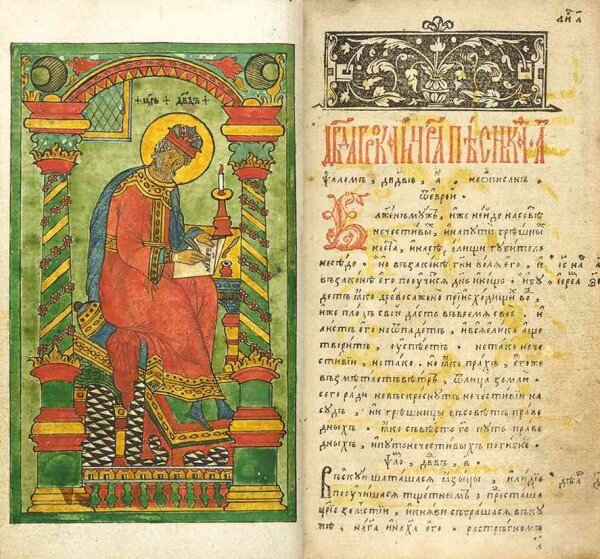 цр҃ь дв҃дъ
Дв҃да прⷪ҇рока и цр҃ѧ пѣсни каⷴ҇ а҃
Ѱаломъ, дв҃двъ, а҃. не ѡписанъ.
ѿ еврей.
Блаженъ мужъ, иже нейде на совѣⷮ
нечестивыⷯ, и на пути грѣшныⷯ
не ста, и на сѣдалищи губитель
не сѣде. но въ законѣ гн҃и волѧ его, и
въ законѣ его поучитсѧ дн҃ь и нощь. и бу
детъ ꙗко древо сажено при исходищи воⷣ,
иже плодъ свой дастъ въ времѧ свое. и
листъ его не ѿпадетъ, и всѧ елика аще
творитъ, успѣетъ. не тако нече
стивїи, не тако. но ꙗко прахъ, егоже
възмѣтаетъ вѣтръ, ѿ лица земли.
сего ради не въскреснутъ нечестивїи на
судъ, ни грѣшницы въ совѣтъ праве
дныхъ. ꙗко свѣсть гь҃ путь праве
дныхъ, и путь нечестивыхъ погибне.
ѱло, дв҃дъ, в҃.
Въскую шаташасѧ ꙗзыцы, и людїе
поучишасѧ тщетнымъ, предсташа
цр҃їе земстїи, и кнѧзи събрашасѧ въку
пѣ, на га҃ и на ха҃ его. растръгнемъ